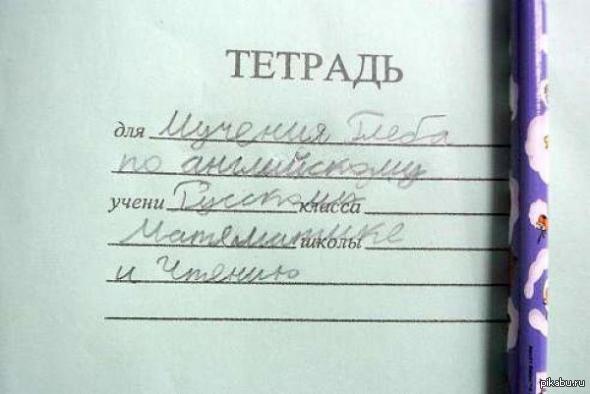 ТЕТРАДЬ
для Мучения Глеба
по английскому
учени Русскому класса
Математике школы
и Чтению
pikabu.ru